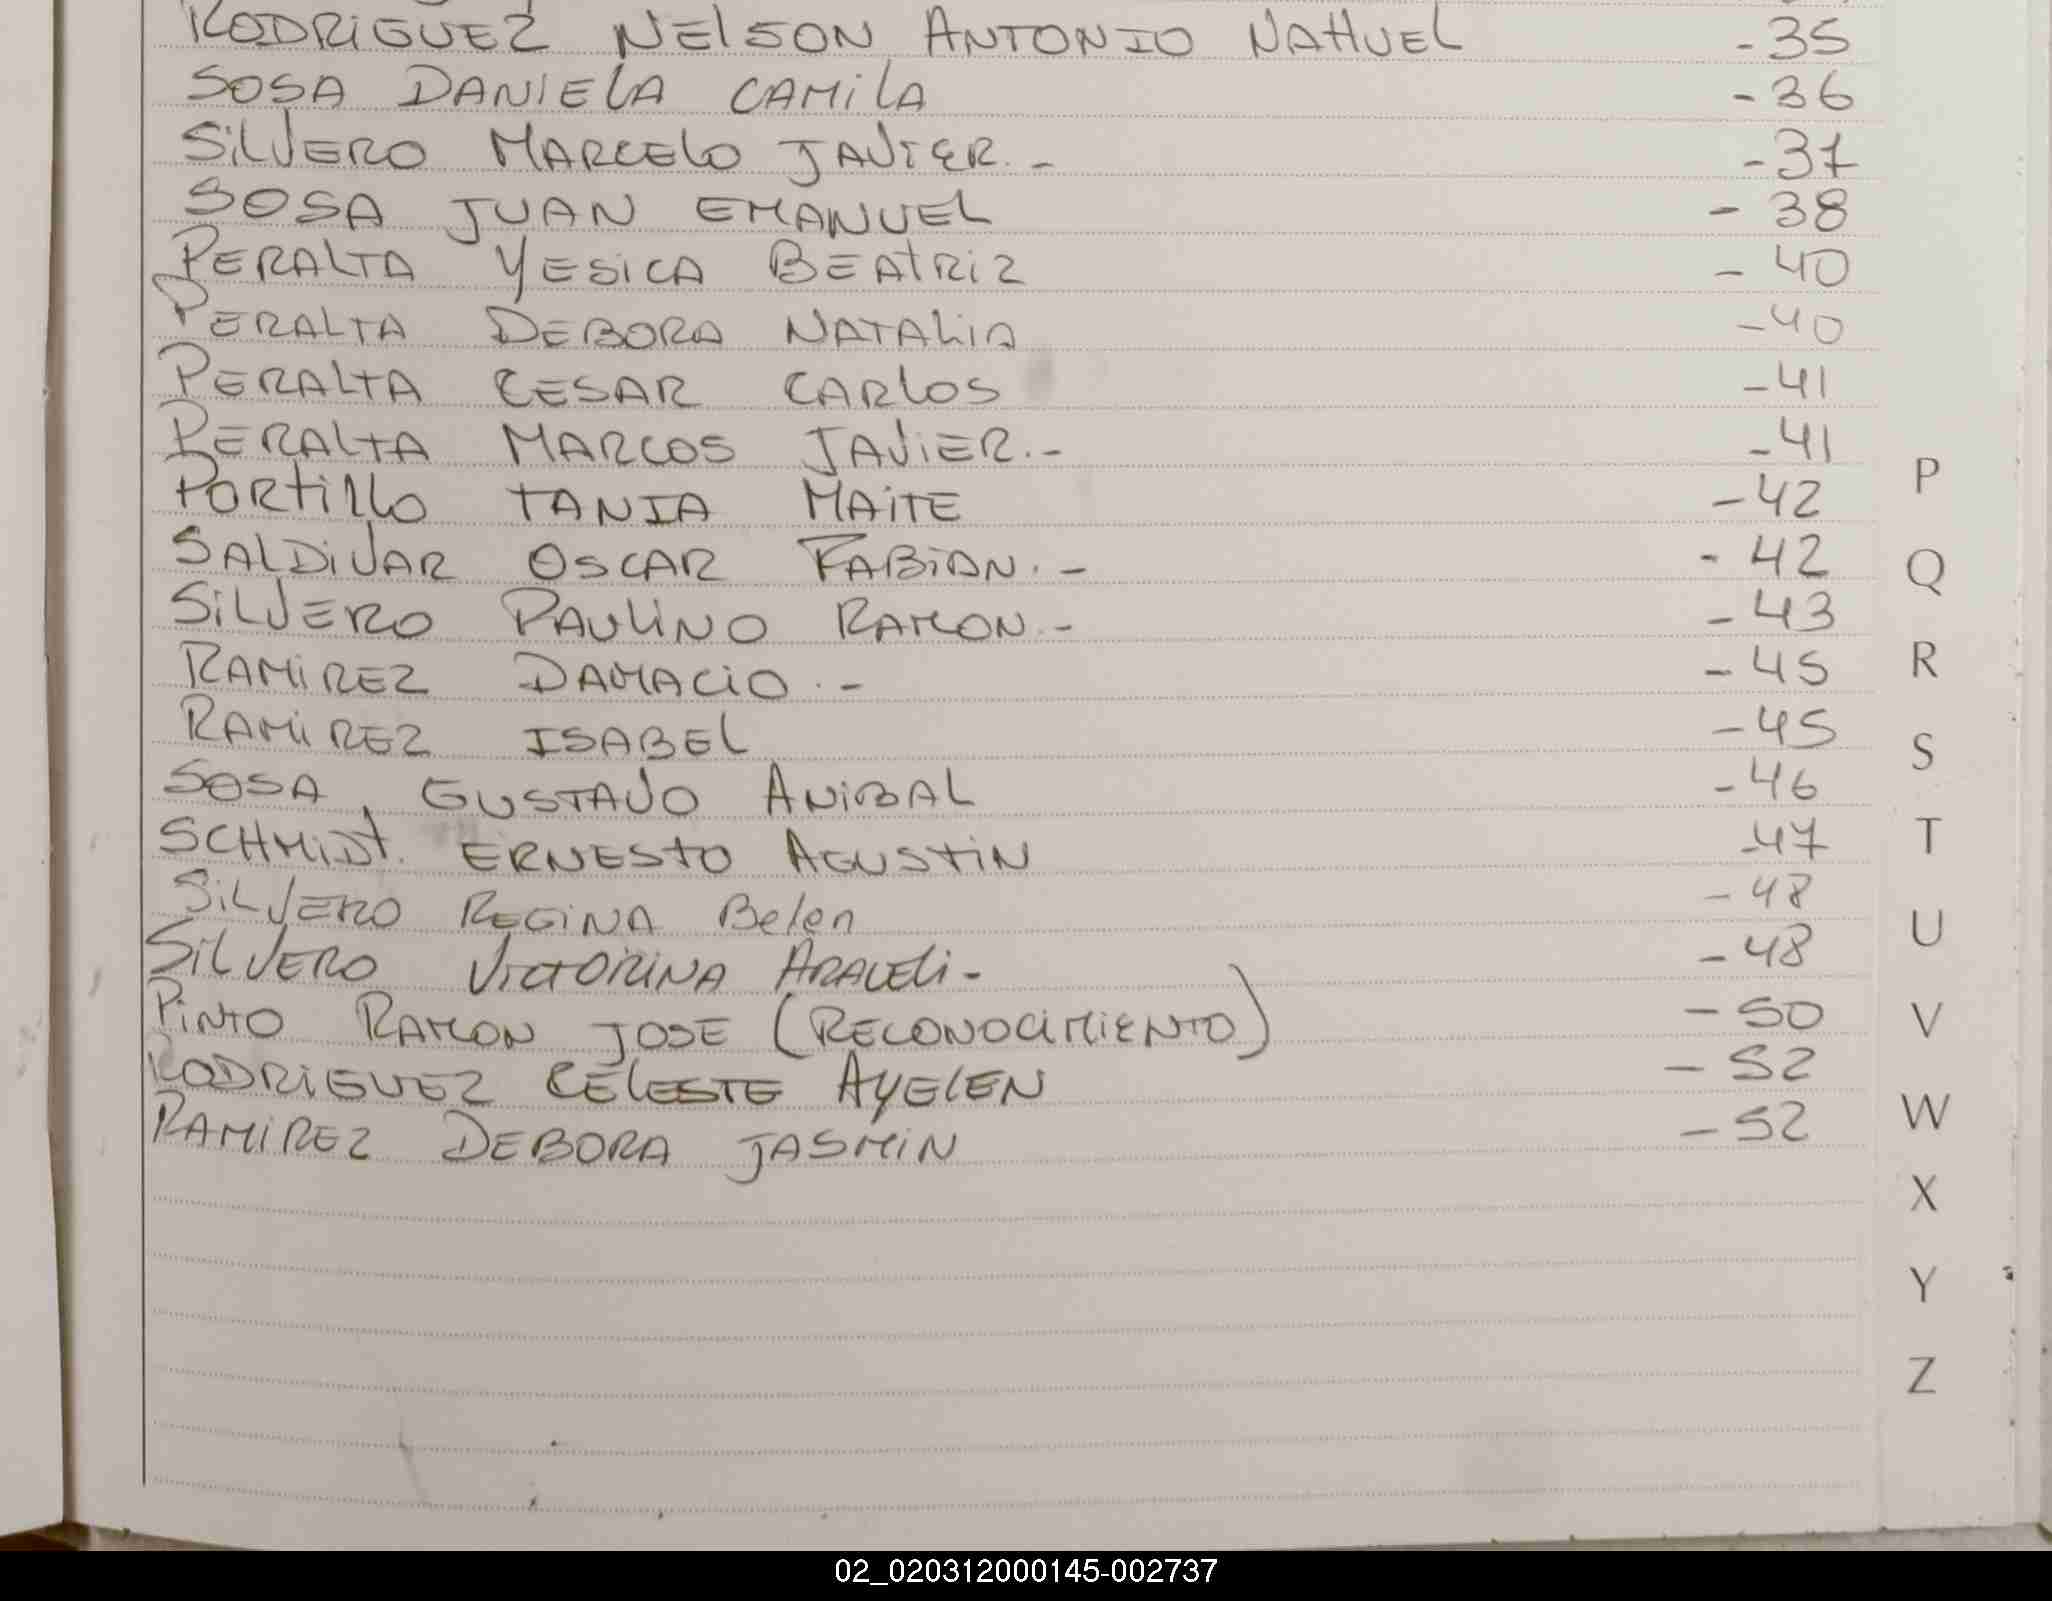 RODRIGUEZ NELSON ANTONIO NAHUEL -35
SOSA DANIELA CAMILA -36
SILVERO MARCELO JAVIER.- -37
SOSA JUAN EMANUEL - 38
PERALTA YESICA BEATRIZ - 40
PERALTA DEBORA NATALIA -40
PERALTA CESAR CARLOS -41
PERALTA MARCOS JAVIER.- -41
PORTILLO TANIA MAITE -42
SALDIVAR OSCAR FABIAN.- - 42
SILVERO PAULINO RAMON.- -43
RAMIREZ DAMACIO.- -45
RAMIREZ ISABEL -45
SOSA, GUSTAVO ANIBAL -46
SCHMIDT. ERNESTO AGUSTIN -47
SILVERO REGINA Belen -48
SILVERO VICTORINA ARACELI- -48
PINTO RAMON JOSE (RECONOCIMIENTO) - 50
RODRIGUEZ CELESTE AYELEN - 52
RAMIREZ DEBORA JASMIN - 52
P
Q
R
S
T
U
V
W
X
Y
Z
02_020312000145-002737